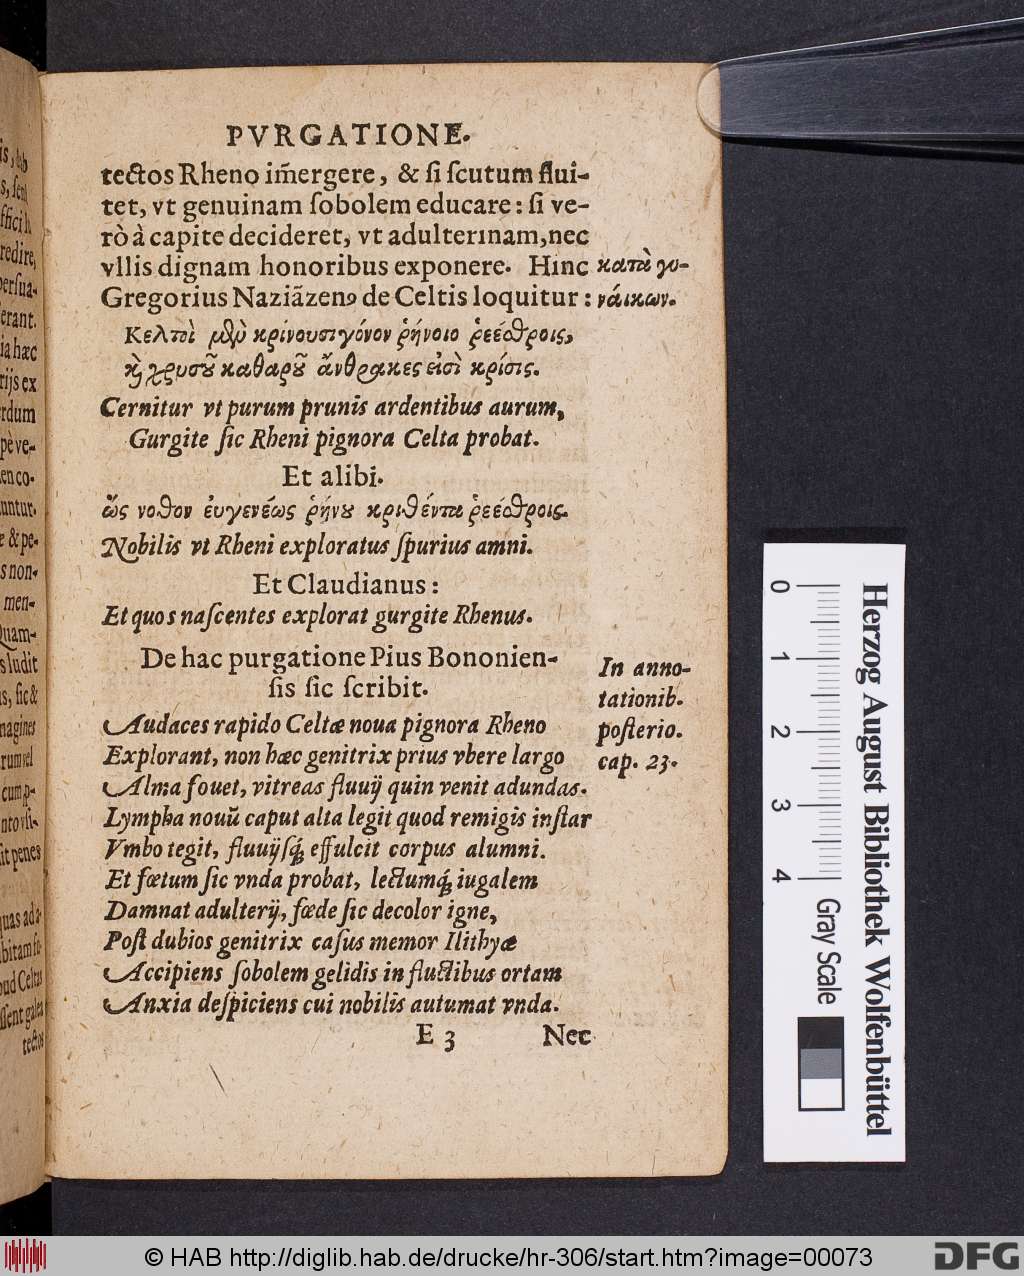 PVRGATIONE.
tectos Rheno im̃ergere, & si scutum flui-
tet, vt genuinam sobolem educare: si ve-
rò à capite decideret, vt adulterinam, nec
vllis dignam honoribus exponere. Hinc
Gregorius Naziãzenꝰ de Celtis loquitur:
κατὰ γυ-
νάικων.
Κελτοὶ μὲν κρίνουσι γόνον ῥήνοιο ῥεέθροις,
κὴ χρυσοῦ καθαροῦ ἄνθρακες εἰσὶ κρίσις.
Cernitur vt purum prunis ardentibus aurum,
Gurgite sic Rheni pignora Celta probat.
Et alibi.
ὥς νοθον ἐυγενέως ῥήνου κριθέντα ῥεέθροις.
Nobilis vt Rheni exploratus spurius amni.
Et Claudianus:
Et quos nascentes explorat gurgite Rhenus.
De hac purgatione Pius Bononien-
sis sic scribit.
In anno-
tationib.
posterio.
cap. 23.
Audaces rapido Celtæ noua pignora Rheno
Explorant, non hæc genitrix prius vbere largo
Alma fouet, vitreas fluuij quin venit adundas.
Lympha nouũ caput alta legit quod remigis instar
Vmbo tegit, fluuijsq́; effulcit corpus alumni.
Et fœtum sic vnda probat, lectumq́; iugalem
Damnat adulterij, fœde sic decolor igne,
Post dubios genitrix casus memor Ilithyæ
Accipiens sobolem gelidis in fluctibus ortam
Anxia despiciens cui nobilis autumat vnda.
E 3
Nec
redire,
persua-
erant.
ia hæc
en co-
& pe-
s non-
men-
Quam-
s ludit
magines
it penes
tectos
0
1
2
3
4
Gray Scale
Herzog August Bibliothek Wolfenbüttel
© HAB http://diglib.hab.de/drucke/hr-306/start.htm?image=00073
DFG